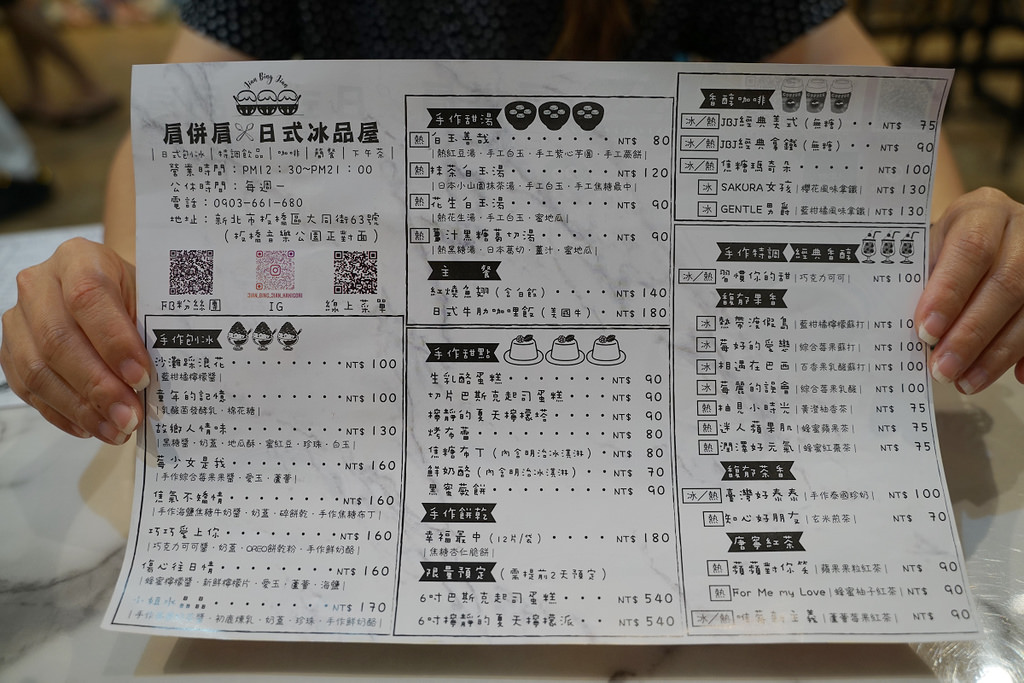 Jian Bing Jian
肩併肩 日式冰品屋
|日式刨冰|特調飲品|咖啡|簡餐|下午茶|
營業時間：PM12：30~PM21：00
公休時間：每週一
電話：0903-661-680
地址：新北市板橋區大同街63號
（板橋音樂公園正對面）
JIAN_BING_JIAN_KAKIGORI
FB粉絲團 IG 線上菜單
手作刨冰
沙灘踩浪花 NT$ 100
|藍柑橘檸檬醬|
童年的記憶 NT$ 100
|乳酸菌發酵乳、棉花糖|
故鄉人情味 NT$ 130
|黑糖醬、奶蓋、地瓜酥、蜜紅豆、珍珠、白玉|
莓少女是我 NT$ 160
|手作綜合莓果果醬、愛玉、蘆薈|
焦氣不嬌情 NT$ 160
|手作海鹽焦糖牛奶醬、奶蓋、碎餅乾、手作焦糖布丁|
巧巧愛上你 NT$ 160
|巧克力可可醬、奶蓋、OREO餅乾粉、手作鮮奶酪|
傷心往日情 NT$ 160
|蜂蜜檸檬醬、新鮮檸檬片、愛玉、蘆薈、海鹽|
NT$ 170
初鹿煉乳、奶蓋、珍珠、手作鮮奶酪|
手作甜湯
熱 白玉善哉 NT$ 80
|熱紅豆湯、手工白玉、手工紫心芋圓、手工蕨餅|
熱 抹茶白玉湯 NT$ 120
|日本小山園抹茶湯、手工白玉、手工焦糖最中|
熱 花生白玉湯 NT$ 90
|熱花生湯、手工白玉、蜜地瓜|
熱 薑汁黑糖葛切湯 NT$ 90
|熱黑糖湯、日本葛切、薑汁、蜜地瓜|
主 餐
紅燒魚翅（含白飯） NT$ 140
日式牛肋咖哩飯（美國牛） NT$ 180
手作甜點
生乳酪蛋糕 NT$ 90
切片巴斯克起司蛋糕 NT$ 90
檸靜的夏天檸檬塔 NT$ 90
烤布蕾 NT$ 80
焦糖布丁（內含明治冰淇淋） NT$ 80
鮮奶酪（內含明治冰淇淋） NT$ 70
黑蜜蕨餅 NT$ 90
手作餅乾
幸福最中（12片/袋） NT$ 180
|焦糖杏仁脆餅|
限量預定（需提前2天預定）
6吋巴斯克起司蛋糕 NT$ 540
6吋檸靜的夏天檸檬派 NT$ 540
香醇咖啡
冰/熱 JBJ經典美式（無糖） NT$ 75
冰/熱 JBJ經典拿鐵（無糖） NT$ 90
冰/熱 焦糖瑪奇朵 NT$ 100
冰 SAKURA女孩|櫻花風味拿鐵| NT$ 130
冰 GENTLE男爵|藍柑橘風味拿鐵| NT$ 130
手作特調 經典香醇
冰/熱 習慣你的甜|巧克力可可| NT$ 100
馥郁果香
冰 熱帶渡假島|藍柑橘檸檬蘇打| NT$ 10
冰 莓好的愛戀|綜合莓果蘇打| NT$ 100
冰 相遇在巴西|百香果乳酸蘇打| NT$ 100
冰 莓麗的誤會|綜合莓果乳酸| NT$ 100
熱 柚見小時光|黃澄柚香茶| NT$ 75
熱 迷人蘋果肌|蜂蜜蘋果茶| NT$ 75
熱 潤澤好元氣|蜂蜜紅棗茶| NT$ 75
馥郁茶香
冰/熱 臺灣好泰泰|手作泰國珍奶| NT$ 100
熱 知心好朋友|玄米煎茶| NT$ 70
唐寧紅茶
熱 蘋蘋對你笑|蘋果果粒紅茶| NT$ 90
熱 For Me my Love|蜂蜜柚子紅茶| NT$ 90
冰/熱 唯莓新主義|蘆薈莓果紅茶| NT$ 90